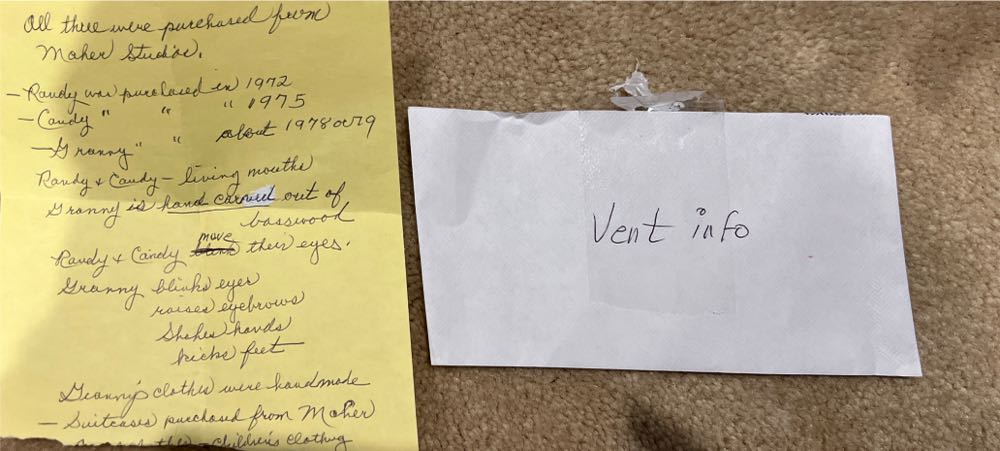 All three were purchased from
Maher Studios.
- Randy was purchased in 1972
- Candy " " " 1975
- Granny " " about 1978 or 79
Randy & Candy - living mouths
Granny is hand carved out of
basswood
move
Randy & Candy blink their eyes.
Granny blinks eyes
raises eyebrows
Shakes hands
kicks feet
Granny's clothes were handmade
- Suitcases purchased from Maher
- Children's clothing
Vent info